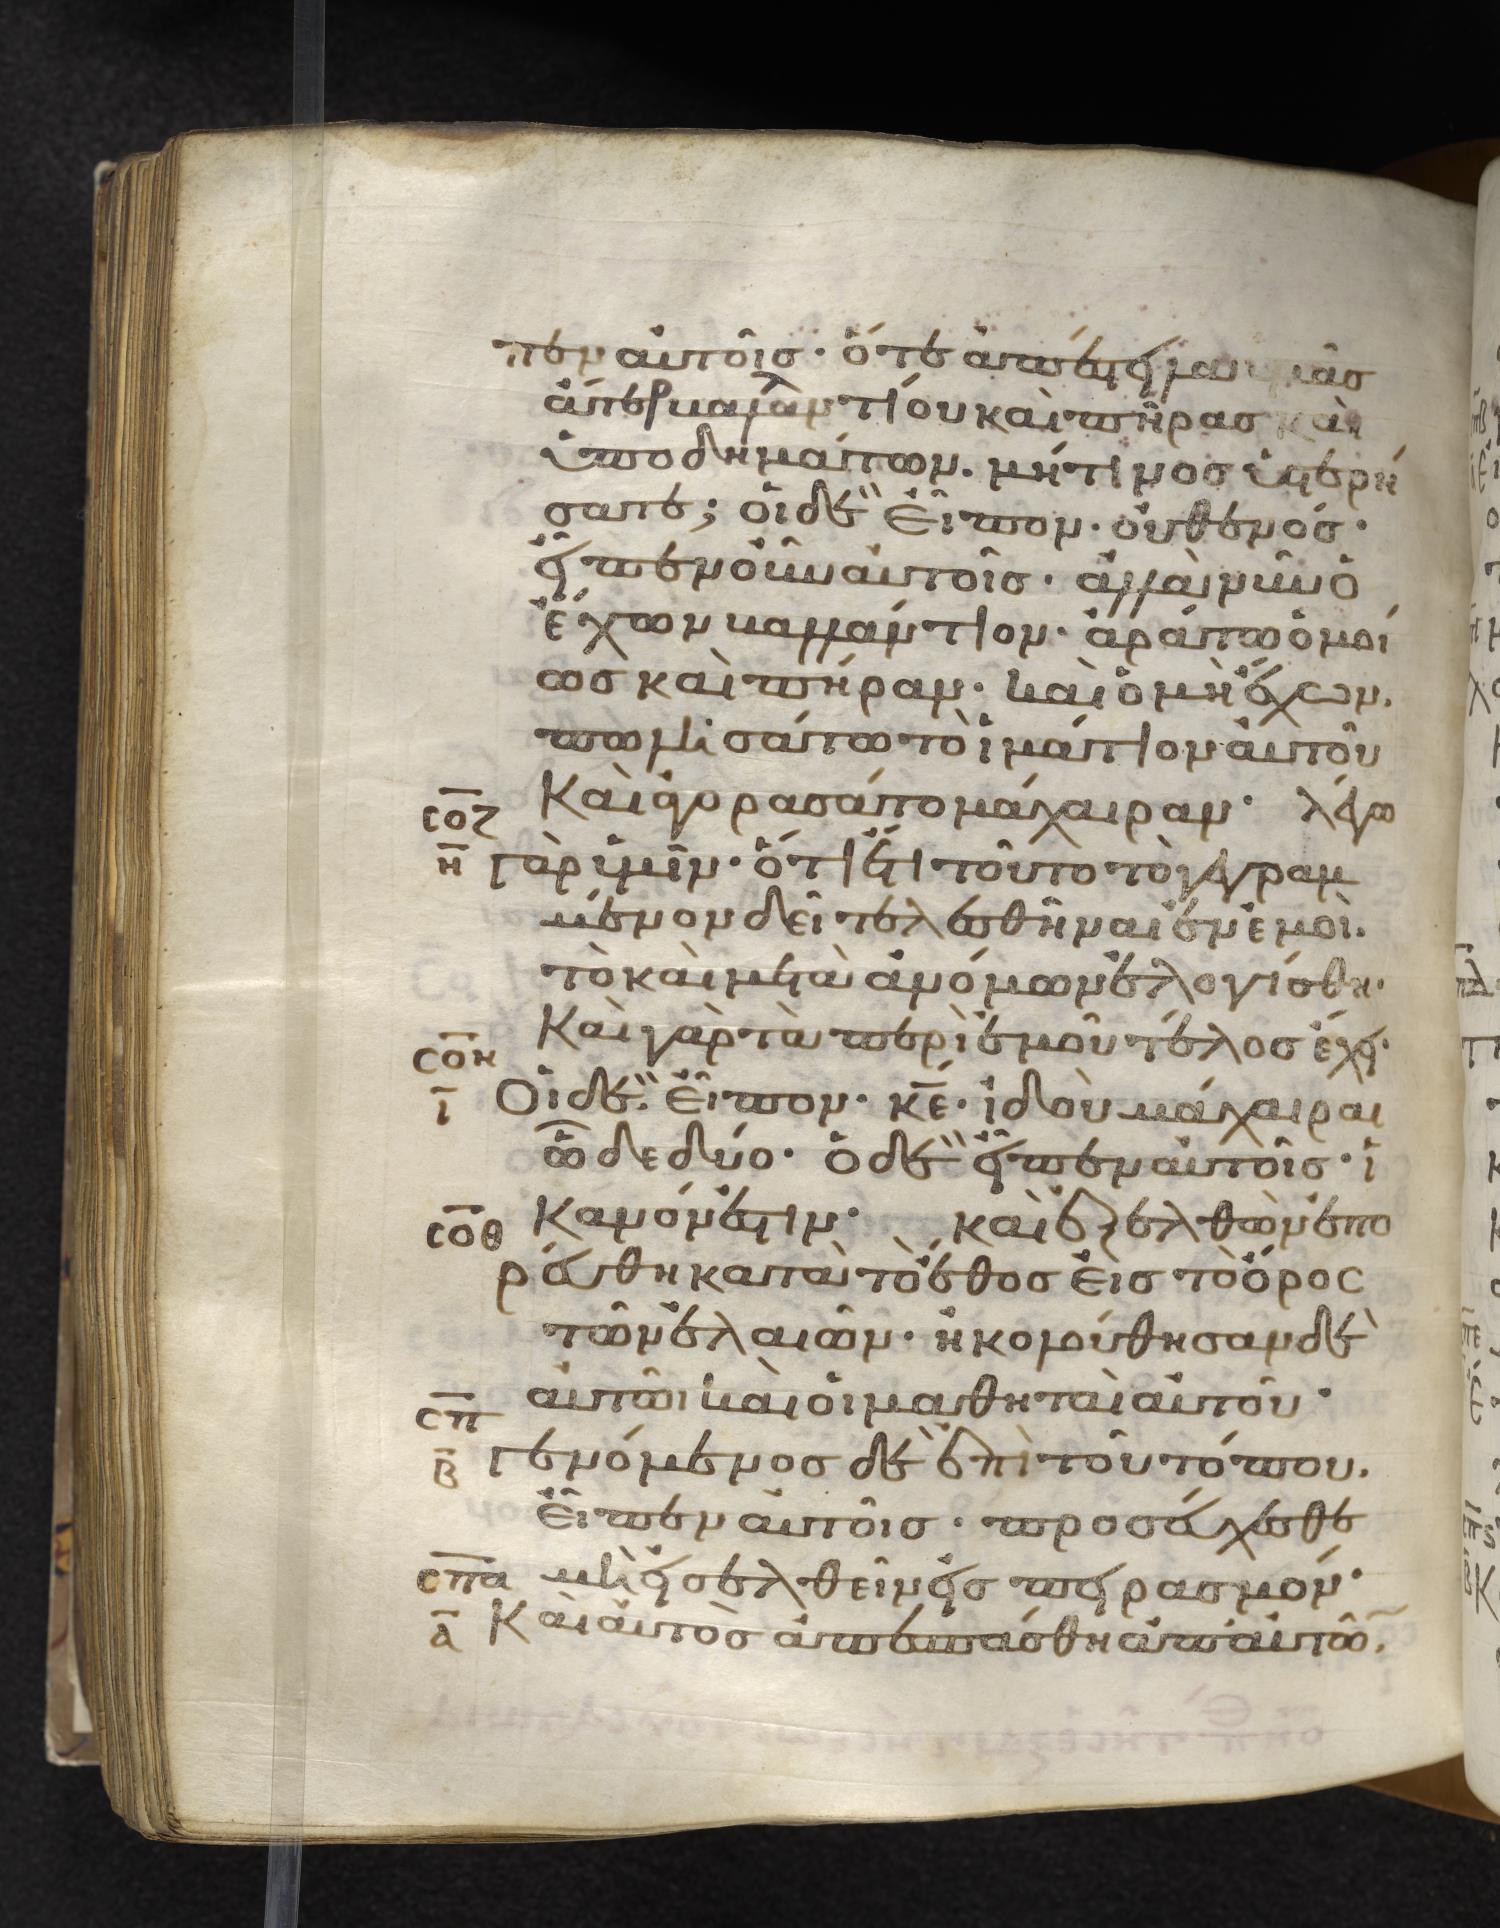 πεν αὐτοῖς· ὅτε ἀπέστειλα ὑμᾶς
ἄτερ βαλαντίου καὶ πήρας καὶ
ὑποδημάτων. μή τινος ὑστερή
σατε; οἱ δὲ εἶπον· οὐθενός·
εἶπεν οὖν αὐτοῖς· ἀλλὰ νῦν ὁ
ἔχων βαλλάντιον· ἀράτω ὁμοί
ως καὶ πήραν· καὶ ὁ μὴ ἔχων.
πωλησάτω τὸ ἱμάτιον αὐτοῦ
σοζ Καὶ ἀγορασάτο μάχαιραν· λέγω
η γὰρ ὑμῖν· ὅτι ἔτι τοῦτο τὸ γεγραμ
μένον δεῖ τελεσθῆναι ἐν ἐμοὶ.
τὸ καὶ μετὰ ἀνόμων ἐλογίσθη·
Καὶ γὰρ τὰ περὶ ἐμοῦ τέλος ἔχει·
σοη
ι Οἱ δὲ εἶπον· κ̅ε̅· ἰδοὺ μάχαιραι
ὧδε δύο· ὁ δὲ εἶπεν αὐτοῖς· ἱ
σοθ κανόν ἐστιν· καὶ ἐξελθὼν ἐπο
ρεύθη κατὰ τὸ ἔθος εἰς τὸ ὄρος
τῶν ἐλαιῶν· ἠκολούθησαν δὲ
αὐτῶι καὶ οἱ μαθηταὶ αὐτοῦ·
σπ
β γενόμενος δὲ ἐπὶ τοῦ τόπου.
εἶπεν αὐτοῖς· προσεύχεσθε
σπα μὴ εἰσελθεῖν εἰς πειρασμόν·
α Καὶ αὐτὸς ἀπεσπάσθη ἀπ' αὐτῶ.